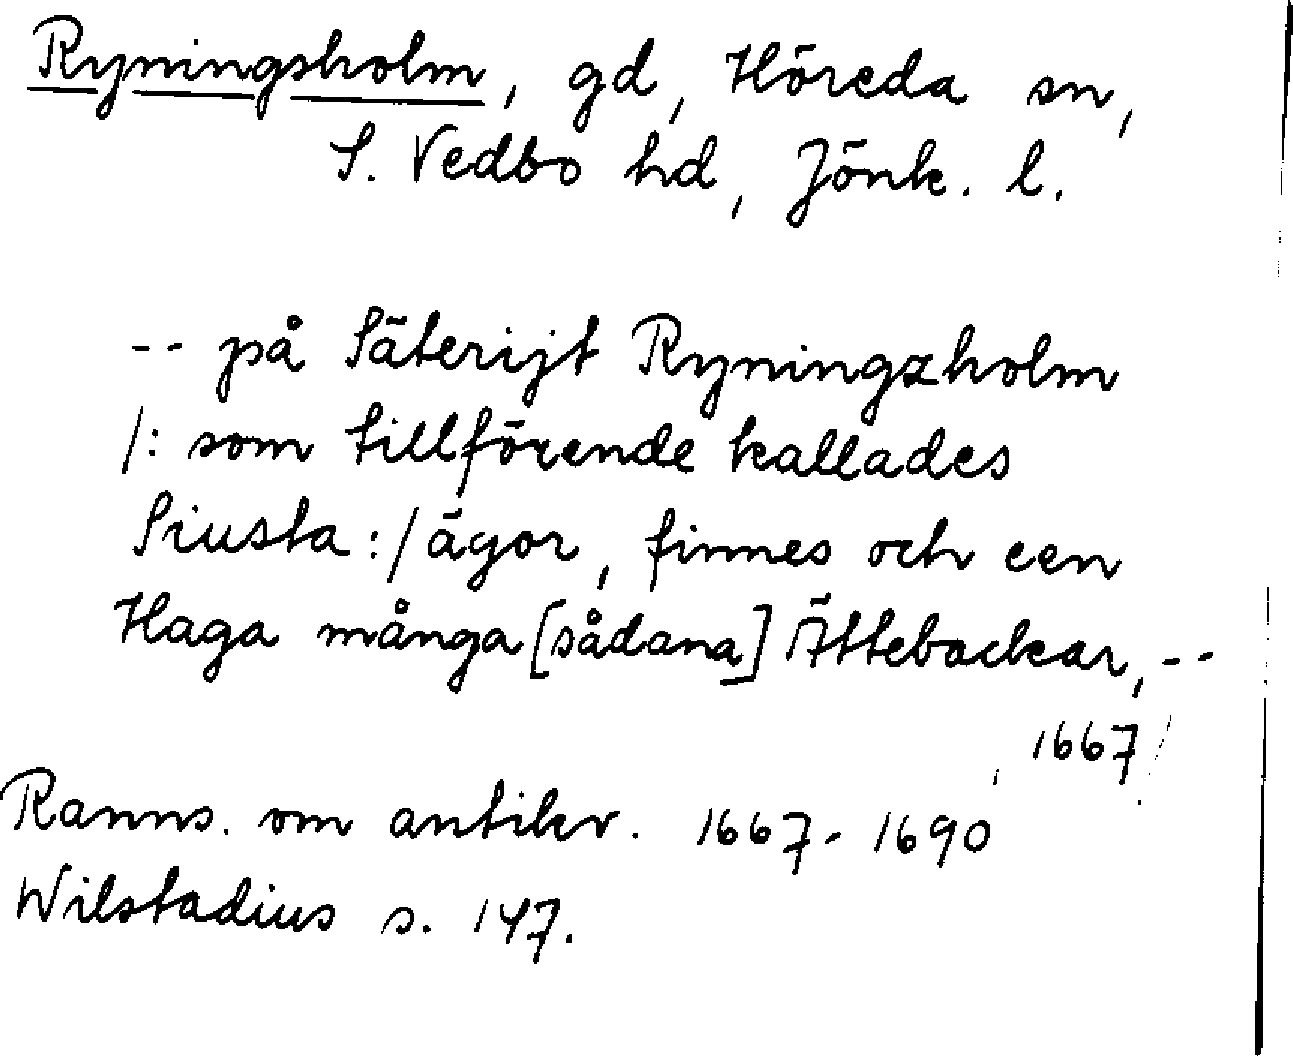 Ryningsholm, gd, Höreda sn,
S. Vedbo hd, Jönk. l.
-- på Säterijt Ryningzholm
/: som tillförende kallades
Siusta :/ ägor, finnes och een
Haga många [sådana] Ättebackar, --
1667
Ranns. om antikv. 1667-1690
Wilstadius s. 147.